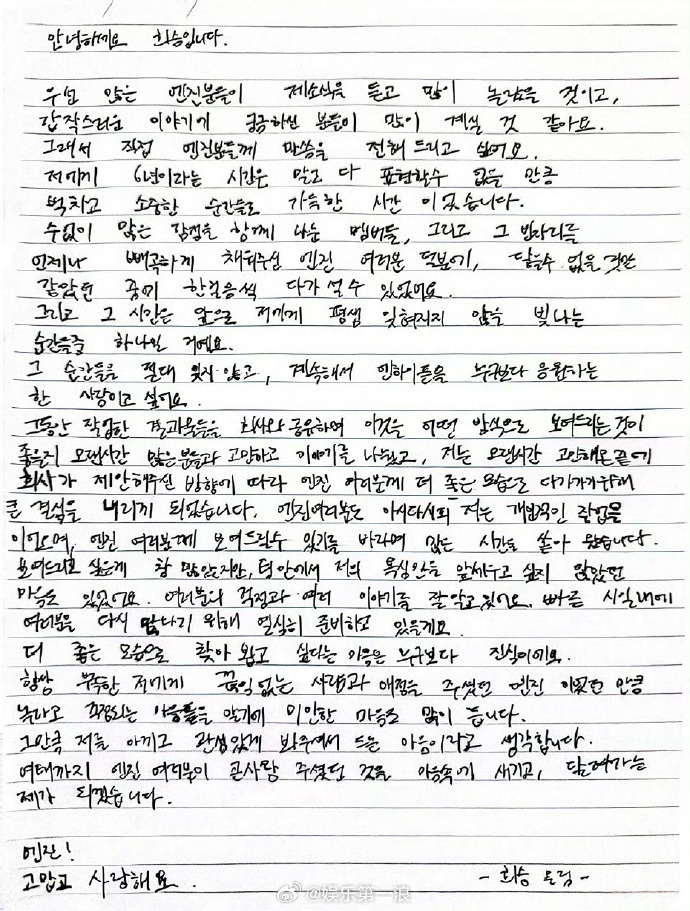 안녕하세요 희승입니다.
우선 많은 엔진분들이 제소식을 듣고 많이 놀랐을 것이고,
갑작스러운 이야기에 궁금하신 분들이 많이 계실 것 같아요.
그래서 직접 엔진분들께 말씀을 전해 드리고 싶어요.
저에게 6년이라는 시간은 말로 다 표현할수 없을 만큼
벅차고 소중한 순간들로 가득한 시간 이었습니다.
수없이 많은 감정을 함께 나눈 멤버들, 그리고 그 빈자리를
언제나 빼곡하게 채워주신 엔진 여러분 덕분에, 닿을수 없을 것만
같았던 꿈에 한걸음씩 다가 설 수 있었어요.
그리고 그 시간은 앞으로 저에게 평생 잊혀지지 않을 빛나는
순간들중 하나일 거예요.
그 순간들을 절대 잊지 않고, 계속해서 엔하이픈을 누구보다 응원하는
한 사람이고 싶어요.
그동안 작업한 결과물들을 회사와 공유하며 이것을 어떤 방식으로 보여드리는것이
좋을지 오랜시간 많은분들과 고민하고 이야기를 나눴고, 저는 오랜시간 고민해온끝에
회사가 제안해주신 방향에 따라 엔진 여러분께 더 좋은 모습으로 다가가기위해
큰 결심을 내리게 되었습니다. 엔진여러분도 아시다시피 저는 개인적인 작업을
이어오며, 엔진 여러분께 보여드릴수 있기를 바라며 많은 시간을 쏟아 왔습니다.
보여드리고 싶은게 참 많았지만, 팀 안에서 저의 욕심만을 앞세우고 싶지 않았던
마음도 있었어요. 여러분의 걱정과 여러 이야기를 잘 알고있어요. 빠른 시일내에
여러분을 다시 만나기 위해 열심히 준비하고 있을게요.
더 좋은 모습으로 찾아 뵙고 싶다는 마음은 누구보다 진심이에요.
항상 부족한 저에게 끊임없는 사랑과 애정을 주셨던 엔진 이었던 만큼
놀라고 걱정되는 마음들을 알기에 미안한 마음도 많이 듭니다.
그만큼 저를 아끼고 관심있게 봐주셔서 드는 마음이라고 생각합니다.
여태까지 엔진 여러분이 큰사랑 주셨던 것을 마음속에 새기고, 달려가는
제가 되겠습니다.
엔진!
고맙고 사랑해요.
- 희승 드림 -
@娱乐第一浪